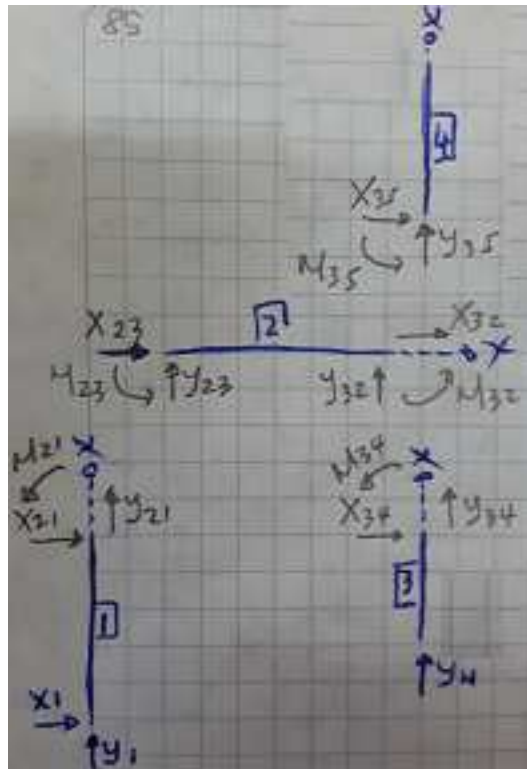 85
X
4
X35
M35
y35
X23
2
X32
X
M23
y23
y32
M32
M21
X
X21
y21
M34
X
X34
y34
1
3
X1
y1
y4